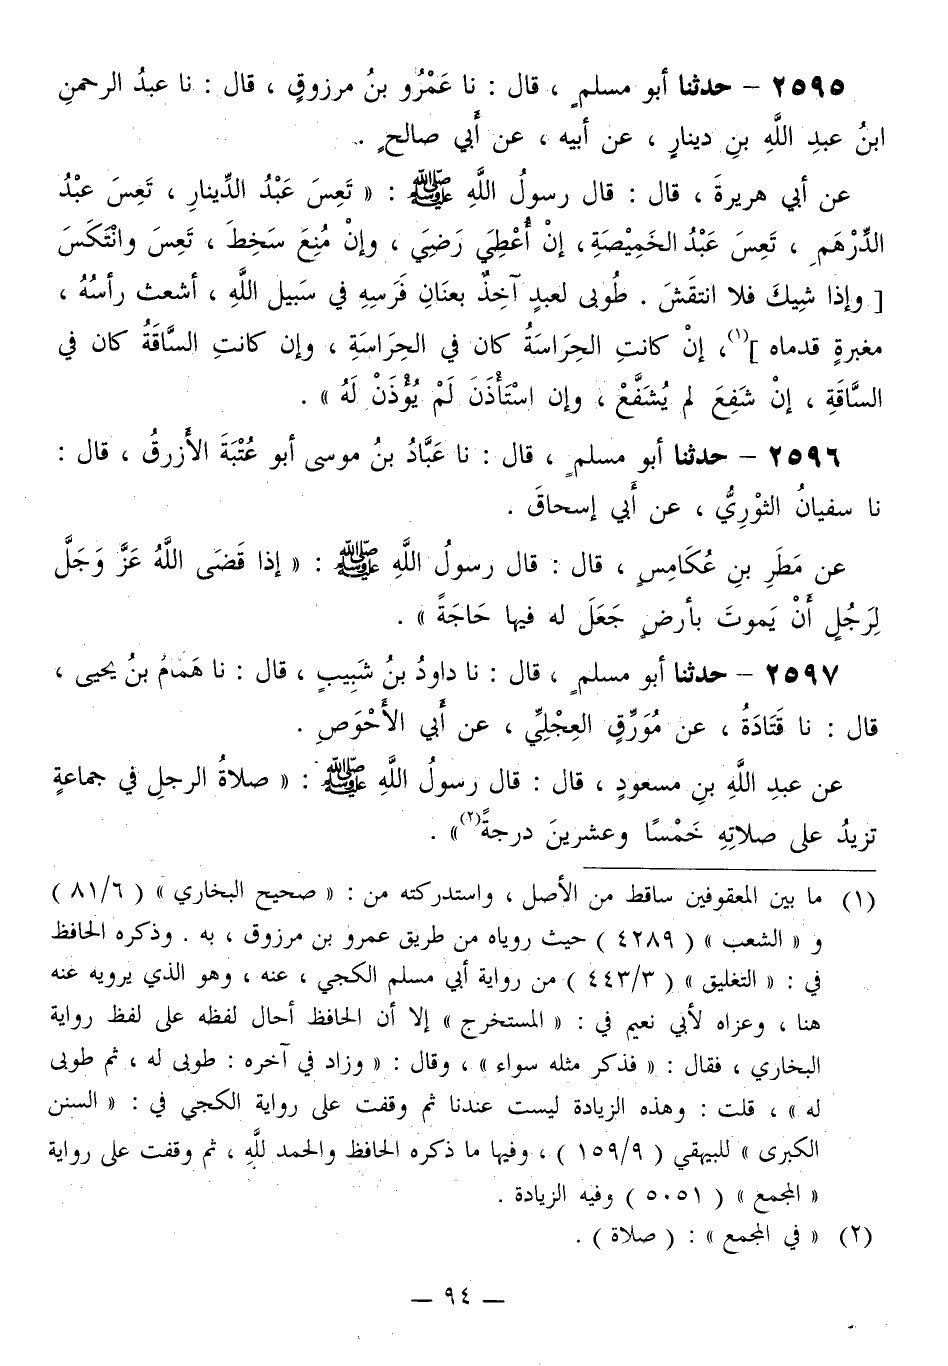 ٢٥٩٥ – حدثنا أبو مسلمٍ ، قال : نا عَمْرُو بنُ مرزوقٍ ، قال : نا عبدُ الرحمنِ
ابنُ عبدِ اللَّهِ بنِ دينارٍ ، عن أبيه ، عن أَبي صالحٍ .
عن أبي هريرةَ ، قال : قال رسولُ اللَّهِ ﷺ : « تَعِسَ عَبْدُ الدِّينارِ ، تَعِسَ عَبْدُ
الدِّرْهَمِ ، تَعِسَ عَبْدُ الخَمِيْصَةِ ، إنْ أُعْطِيَ رَضِيَ ، وإنْ مُنِعَ سَخِطَ ، تَعِسَ وانْتَكَسَ
[ وإذا شِيكَ فلا انتقشَ . طُوبى لعبدٍ آخِذٌ بعنَانِ فَرَسِهِ في سَبيل اللَّهِ ، أشعث رأسُهُ ،
مغبرةٍ قدماه ](١)، إنْ كانتِ الحِراسَةُ كان في الحِراسَةِ ، وإن كانتِ السَّاقَةُ كان في
السَّاقَةِ ، إنْ شَفِعَ لم يُشَفَّعْ ، وإن اسْتَأْذَنَ لَمْ يُؤْذَنْ لَهُ » .
٢٥٩٦ – حدثنا أبو مسلمٍ ، قال : نا عَبَّادُ بنُ موسى أبو عُتْبَةَ الأَزرقُ ، قال :
نا سفيانُ الثوْرِيُّ ، عن أَبي إسحاقَ .
عن مَطَرِ بنِ عُكَامِسٍ ، قال : قال رسولُ اللَّهِ ﷺ : « إذا قَضَى اللَّهُ عَزَّ وَجَلَّ
لِرَجُلٍ أَنْ يَموتَ بأرضٍ جَعَلَ له فيها حَاجَةً » .
٢٥٩٧ – حدثنا أبو مسلمٍ ، قال : نا داودُ بنُ شَبِيبٍ ، قال : نا هَمَّامُ بنُ يحيى ،
قال : نا قَتَادَةُ ، عن مُوَرِّقٍ العِجْلِيِّ ، عن أَبي الأَحْوَصِ .
عن عبدِ اللَّهِ بنِ مسعودٍ ، قال : قال رسولُ اللَّهِ ﷺ : « صلاةُ الرجلِ في جماعةٍ
تزيدُ على صلاتِهِ خَمْسًا وعشرينَ درجةً(٢)» .
(١) ما بين المعقوفين ساقط من الأصل ، واستدركته من : « صحيح البخاري » ( ٨١/٦ )
و « الشعب » ( ٤٢٨٩ ) حيث روياه من طريق عمرو بن مرزوق ، به . وذكره الحافظ
في : « التغليق » ( ٤٤٣/٣ ) من رواية أبي مسلم الكجي ، عنه ، وهو الذي يرويه عنه
هنا ، وعزاه لأبي نعيم في : « المستخرج » إلا أن الحافظ أحال لفظه على لفظ رواية
البخاري ، فقال : « فذكر مثله سواء » ، وقال : « وزاد في آخره : طوبى له ، ثم طوبى
له » ، قلت : وهذه الزيادة ليست عندنا ثم وقفت على رواية الكجي في : « السنن
الكبرى » للبيهقي ( ١٥٩/٩ ) ، وفيها ما ذكره الحافظ والحمد للَّهِ ، ثم وقفت على رواية
« المجمع » ( ٥٠٥١ ) وفيه الزيادة .
(٢) « في المجمع » : ( صلاة ) .
— ٩٤ —